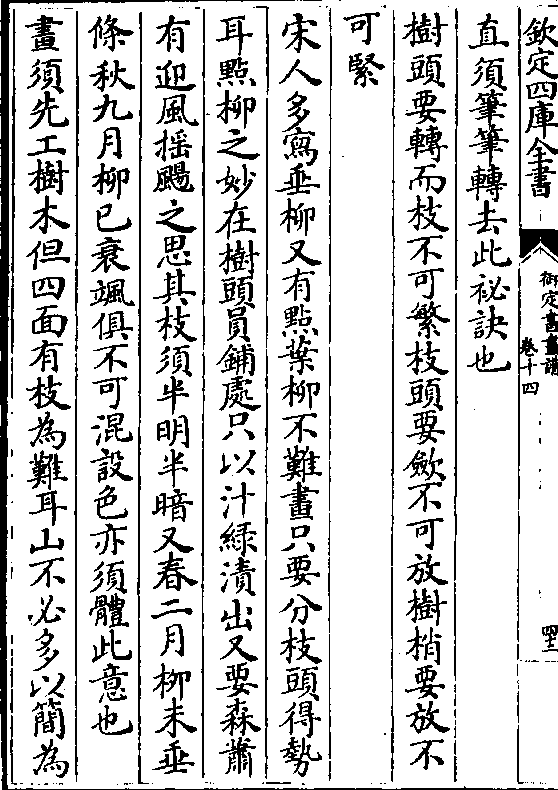 欽定四庫全書
御定書畫譜
卷十四
四十二
直須筆筆轉去此祕訣也
樹頭要轉而枝不可繁枝頭要歛不可放樹梢要放不
可緊
宋人多寫垂柳又有點葉柳不難畫只要分枝頭得勢
耳點柳之妙在樹頭員鋪處只以汁綠漬出又要森蕭
有迎風揺颺之思其枝須半明半暗又春二月柳未垂
條秋九月柳已衰颯俱不可混設色亦須體此意也
畫須先工樹木但四面有枝為難耳山不必多以簡為